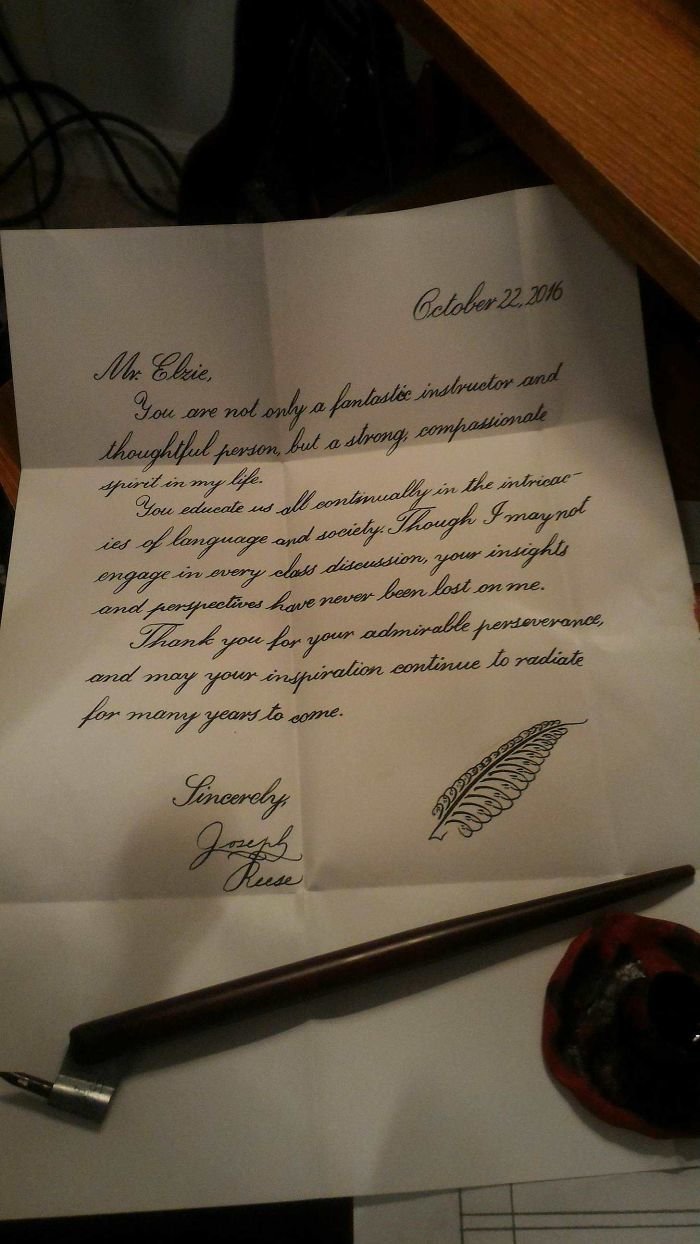 October 22, 2016
Mr. Elzie,
You are not only a fantastic instructor and
thoughtful person, but a strong, compassionate
spirit in my life.
You educate us all continually in the intricac-
ies of language and society. Though I may not
engage in every class discussion, your insights
and perspectives have never been lost on me.
Thank you for your admirable perseverance,
and may your inspiration continue to radiate
for many years to come.
Sincerely,
Joseph
Reese